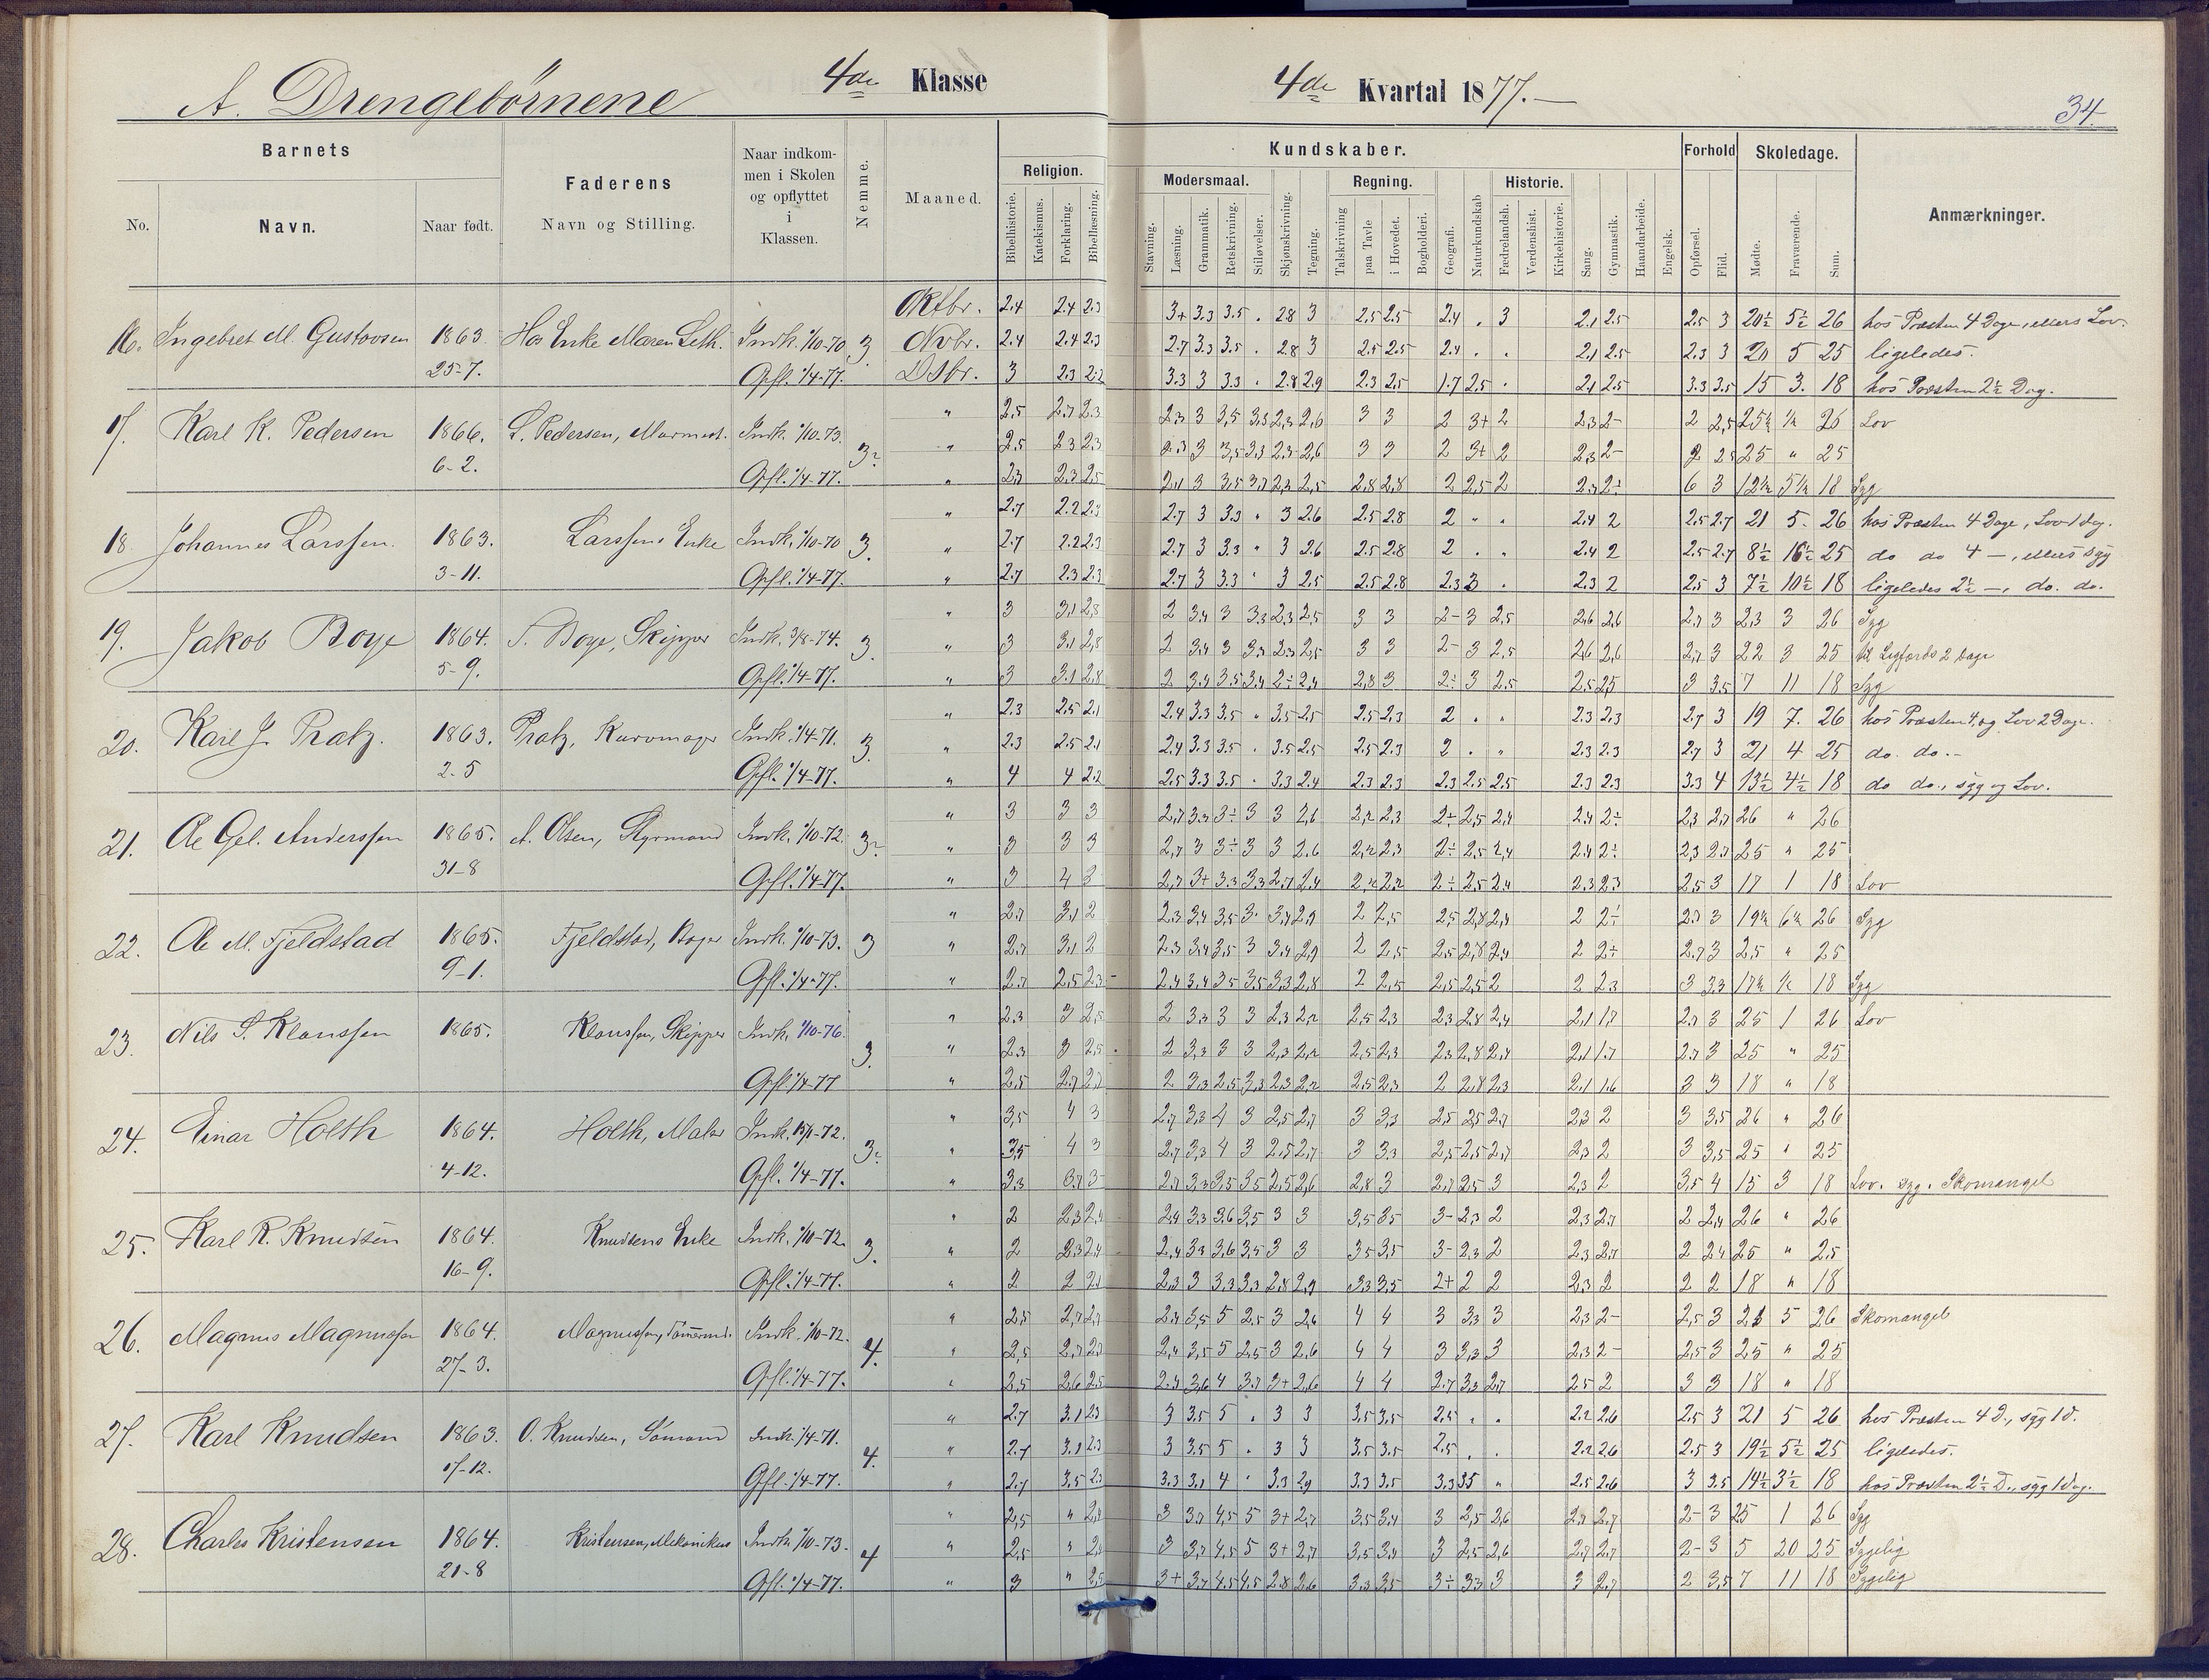 A. Drengebørnene 4de Klasse
4de Kvartal 1877.—
34.
Barnets
No. Navn. Naar født.
Faderens Navn og Stilling.
Naar indkom-
men i Skolen
og opflyttet
i
Klassen.
Nemme.
Maaned.
Religion.
Bibelhistorie. Katekismus. Forklaring. Bibellæsning.
Kundskaber.
Modersmaal. Regning. Historie.
Stavning. Læsning. Grammatik. Retskrivning. Stiløvelser. Skjønskrivning. Tegning. Talskrivning paa Tavle i Hovedet. Bogholderi. Geografi. Naturkundskab Fædrelandsh. Verdenshist. Kirkehistorie. Sang. Gymnastik. Haandarbeide. Engelsk.
Forhold
Opførsel. Flid.
Skoledage.
Mødte. Fraværende. Sum.
Anmærkninger.
Oktbr. 2.4 2.4 2.3 3+ 3.3 3.5 . 2.8 3 2.5 2.5 2.4 . 3 2.1 2.5 2.5 3 20½ 5½ 26 hos Præsten 4 Dage, ellers Lov.
16. Ingebret M. Gustavsen 1863. Hos Enke Maren Leth. Indk. 1/10-70 3. Novbr. 2.4 2.4 2.3 2.7 3.3 3.5 . 2.8 3 2.5 2.5 2.4 . . 2.1 2.5 2.3 3 20 5 25 ligeledes.
25-7. Opfl. 1/4-77. Dsbr. 3 2.3 2.2 3.3 3 3.3 . 2.8 2.9 2.3 2.5 1.7 2.5 . 2.1 2.5 3.3 3.5 15 3. 18 hos Præsten 2½ Dag.
" 2,5 2,7 2,3 2,3 3 3,5 3,3 2,3 2,6 3 3 2 3+ 2 2,3 2- 2 2,5 25½ ½ 26 Lov
17. Karl K. Pedersen 1866. L. Pedersen, Murmest. Indk. 1/10-73. 3 " 2,5 2,3 2,3 2,3 3 3,5 3,3 2,3 2,6 3 3 2 3+ 2 2,3 2- 2 2,5 25 " 25
6-2. Opfl. 1/4-77. " 2,3 2,3 2,5 2,1 3 3,5 3,7 2,3 2,5 2,8 2,8 2 2,5 2 2,3 2÷ 6 3 12½ 5½ 18 Syg
" 2.7 2.2 2.3 2.7 3 3.3 " 3 2.6 2.5 2.8 2 " " 2.4 2 2.5 2.7 21 5 26 hos Præsten 4 Dage, Lov 1 dag.
18. Johannes Larssen 1863. Larssens Enke Indk. 1/10-70 3. " 2.7 2.2 2.3 2.7 3 3.3 " 3 2.6 2.5 2.8 2 . " 2.4 2 2.5 2.7 8½ 16½ 25 do do 4 —, ellers syg
3-11. Opfl. 1/4-77. " 2.7 2.3 2.3 2.7 3 3.3 " 3 2.5 2.5 2.8 2.3 3 . 2.3 2 2.5 3 7½ 10½ 18 ligeledes 2½ —, do. do.
" 3 3,1 2,8 2 3,4 3 3,3 2,3 2,5 3 3 2- 3 2,5 2,6 2,6 2,7 3 23 3 26 Syg
19. Jakob Boye 1864. T. Boye, Skipper Indk. 3/8-74. 3. " 3 3,1 2,8 2 3,4 3 3,3 2,3 2,5 3 3 2- 3 2,5 2,6 2,6 2,7 3 22 3 25 til Ligfærds 2 Dage
5-9. Opfl. 1/4-77. " 3 3,1 2,8 2 3,4 3,5 3,4 2÷ 2,4 2,8 3 2÷ 3 2,5 2,5 2,5 3 3,5 7 11 18 Syg
" 2.3 2.5 2.1 2.4 3.3 3.5 " 3.5 2.5 2.5 2.3 2 . " 2.3 2.3 2.7 3 19 7. 26 hos Præsten 4, og Lov 2 Dage.
20. Karl J. Pratz. 1863. Pratz, Kurvmager Indk. 1/4-71. 3. " 2.3 2.5 2.1 2.4 3.3 3.5 . 3.5 2.5 2.5 2.3 2 . " 2.3 2.3 2.7 3 21 4 25 do. do. -
2-5 Opfl. 1/4-77. " 4 4 2.2 2.5 3.3 3.5 . 3.3 2.4 2.3 2.3 2.3 2.5 2.5 2.3 2.3 3.3 4 13½ 4½ 18 do do., syg og Lov.
" 3 3 3 2,7 3,3 3÷ 3 3 2,6 2,2 2,3 2÷ 2,5 2,4 2,4 2÷ 2,3 2,7 26 " 26
21. Ole Gel. Anderssen 1865. A. Olsen, Styrmand Indk. 1/10-72. 3 " 3 3 3 2,7 3 3÷ 3 3 2,6 2,2 2,3 2÷ 2,5 2,4 2,4 2÷ 2,3 2,7 25 " 25
31-8 Opfl. 1/4-77. " 3 4 3 2,7 3+ 3,3 3,3 2,7 2,4 2,2 2,2 2÷ 2,5 2,4 2,3 2,3 2,5 3 17 1 18 Lov
" 2,7 3,1 2 2,3 3,4 3,5 3 3,4 2,9 2 2,5 2,5 2,8 2,4 2 2÷ 2,7 3 19½ 6½ 26 Syg
22. Ole M. Fjeldstad 1865. Fjeldstad, Bager Indk. 1/10-73. 3 " 2,7 3,1 2 2,3 3,4 3,5 3 3,4 2,9 2 2,5 2,5 2,8 2,4 2 2÷ 2,7 3 25 " 25
9-1. Opfl. 1/4-77. " 2,7 2,5 2,3 2,4 3,4 3,5 3,5 3,3 2,8 2 2,5 2,5 2,5 2 2 2,3 3 3,3 17½ ½ 18 Syg
" 2,3 3 2,5 2 3,3 3 3 2,3 2,2 2,5 2,3 2,3 2,8 2,4 2,1 1,7 2,7 3 25 1 26 Lov
23. Nils S. Klaussen 1865. Klaussen, Skipper Indk. 1/10-76. 3. " 2,3 3 2,5 2 3,3 3 3 2,3 2,2 2,5 2,3 2,3 2,8 2,4 2,1 1,7 2,7 3 25 " 25
Opfl. 1/4-77 " 2,5 2,7 2,7 2 3,3 2,5 3,3 2,3 2,2 2,5 2,3 2 2,8 2,3 2,1 1,6 3 3 18 " 18
" 3,5 4 3 2,7 3,3 4 3 2,5 2,7 3 3,3 2,5 2,5 2,7 2,3 2 3 3,5 26 " 26
24. Einar Holth 1864. Holth, Maler Indk. 15/1-72. 3 " 3,5 4 3 2,7 3,3 4 3 2,5 2,7 3 3,3 2,5 2,5 2,7 2,3 2 3 3,5 25 " 25
4-12. Opfl. 1/4-77. " 3,3 3,7 3 2,7 3,3 3,5 3,5 2,5 2,6 2,8 3 2,7 2,5 3 2,3 2 3,5 4 15 3 18 Lov. syg. Skomangel
" 2 2,3 2,4 2,4 3,3 3,6 3,5 3 3 3,5 3,5 3- 2,3 2 2,3 2,7 2 2,4 26 " 26
25. Karl R. Knudsen 1864. Knudsens Enke Indk. 1/10-72. 3. " 2 2,3 2,4 2,4 3,3 3,6 3,5 3 3 3,5 3,5 3- 2,3 2 2,3 2,7 2 2,4 25 " 25
16-9. Opfl. 1/4-77. " 2 2 2,1 2,3 3 3,3 3,3 2,8 2,9 3,3 3,5 2+ 2 2 2,3 2 2 2 18 " 18
" 2,5 2,7 2,7 2,4 3,5 5 2,5 3 2,6 4 4 3 3,3 3 2,3 2- 2,5 3 21 5 26 Skomangel
26. Magnus Magnussen 1864. Magnussen, Tømermd. Indk. 1/10-72. 4. " 2,5 2,7 2,7 2,4 3,5 5 2,5 3 2,6 4 4 3 3,3 3 2,3 2- 2,5 3 25 " 25
27-3. Opfl. 1/4-77. " 2,5 2,6 2,5 2,4 3,6 4 3,7 3+ 2,6 4 4 2,7 3,3 2,7 2,5 2 3 3 18 " 18
" 2.7 3.1 2.3 3 3.5 5 . 3 3 3.5 3.5 2.5 . . 2.2 2.6 2.5 3 21 5 26 hos Præsten 4 D., syg 1 d.
27. Karl Knudsen 1863. O. Knudsen, Sømand Indk. 1/4-71. 4. " 2.7 3.1 2.3 3 3.5 5 . 3 3 3.5 3.5 2.5 . . 2.2 2.6 2.5 3 19½ 5½ 25 ligeledes.
17-12. Opfl. 1/4-77. " 2.7 3.5 2.3 3.3 3.1 4 " 3.3 2.9 3.3 3.5 3.3 3.5 " 2.5 2.6 3 3.5 14½ 3½ 18 hos Præsten 2½ D., syg 1 Dag.
" 2,5 " 2,2 3 3,7 4,5 5 3+ 2,7 3,5 3,4 3 2,5 2,6 2,7 2,7 2- 3 25 1 26 Syg
28. Charles Kristensen 1864. Kristensen, Mekanikus Indk. 1/10-73. 4 " 2,5 " 2,2 3 3,7 4,5 5 3+ 2,7 3,5 3,4 3 2,5 2,6 2,7 2,7 2- 3 5 20 25 Sygelig
21-8 Opfl. 1/4-77. " 3 " 2,5 3+ 3,7 4,5 4,5 2,8 2,6 3,3 3,5 3÷ 3,3 3 3 2,7 2 3,5 7 11 18 Sygelig